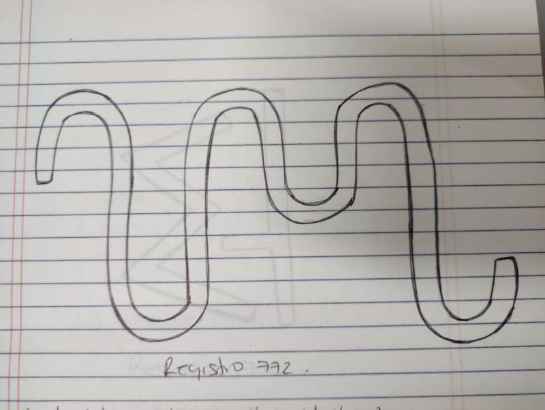 Registro 772.